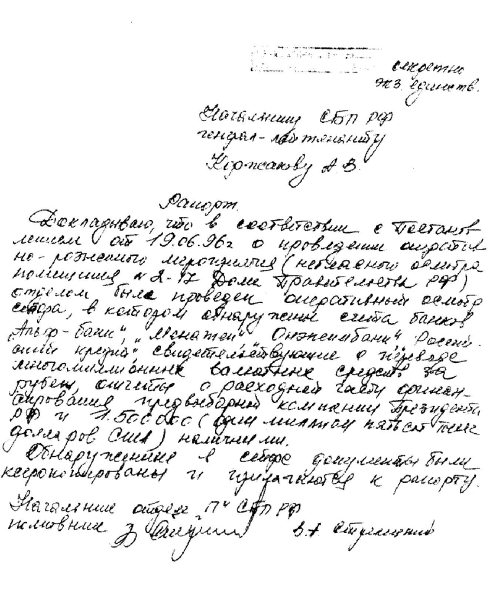 секретно
экз. единств.
Начальнику СБП РФ
генерал-лейтенанту
Коржакову А.В.
Рапорт
Докладываю, что в соответствии с Постанов
лением от 19.06.96г о проведении оператив
но-розыскного мероприятия (негласного осмотра
помещения №2-17 Дома Правительства РФ)
отделом был проведен оперативный осмотр
сейфа, в котором обнаружены счета банков
"Альфа-банк", "Менатеп", "Онэксимбанк", Россий
ский кредит" свидетельствующие о переводе
многомиллионных валютных средств за
рубеж, отчеты о расходной части финан-
сирования предвыборной компании Президента
РФ и 1.500 000 (один миллион пятьсот тысяч
долларов США) наличными.
Обнаруженные в сейфе документы были
ксерокопированы и прилагаются к рапорту.
Начальник отдела "П" СБП РФ
полковник В.А. Стрелецкий